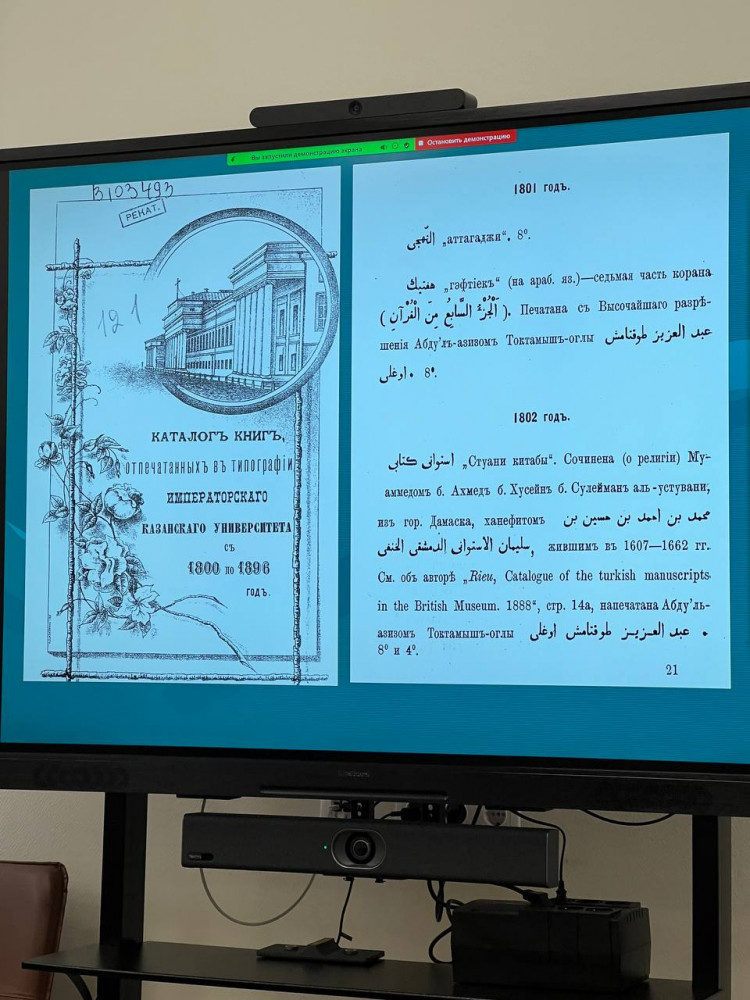 Вы запустили демонстрацию экрана
Остановить демонстрацию
В103493
РЕНАТ.
121
КАТАЛОГЪ КНИГЪ,
отпечатанныхъ въ типографіи
ИМПЕРАТОРСКАГО
КАЗАНСКАГО УНИВЕРСИТЕТА
съ
1800 по 1896
годъ.
1801 годъ.
التّهجى „аттагаджи“. 8°.
هفتيك „гэфтіекъ“ (на араб. яз.)—седьмая часть корана
(اَلْجُزْءُ السَّابِعُ مِنَ الْقُرْآنِ). Печатана съ Высочайшаго разрѣ-
шенія Абду'ль-азизомъ Токтамышъ-оглы عبد العزيز طوقتامش
اوغلى. 8°.
1802 годъ.
استوانى كتابى „Стуани китабы“. Сочинена (о религіи) Му-
аммедомъ б. Ахмедъ б. Хусейнъ б. Сулейманъ аль-устувани,
изъ гор. Дамаска, ханефитомъ محمد بن احمد بن حسين بن
سليمان الاستوانى الدمشقى الحنفى, жившимъ въ 1607—1662 гг.
См. объ авторѣ „Rieu, Catalogue of the turkish manuscripts
in the British Museum. 1888“, стр. 14a, напечатана Абду'ль-
азизомъ Токтамышъ-оглы عبد العزيز طوقتامش اوغلى.
8° и 4°.
21